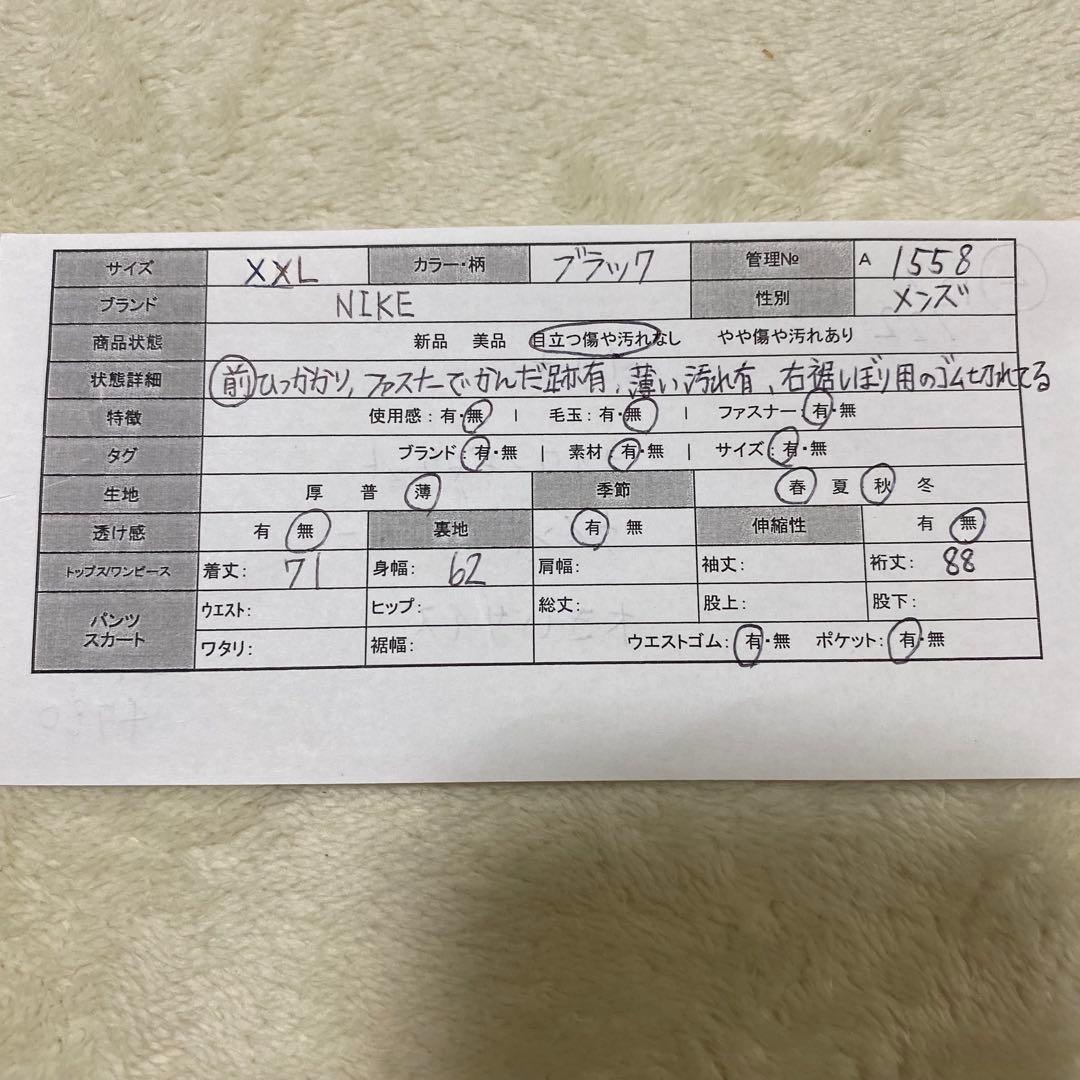 サイズ XXL カラー・柄 ブラック 管理№ A 1558
ブランド NIKE 性別 メンズ
商品状態 新品 美品 目立つ傷や汚れなし やや傷や汚れあり
状態詳細 前ひっかかり、ファスナーでかんだ跡有、薄い汚れ有、右裾しぼり用のゴム切れてる
特徴 使用感:有・無 | 毛玉:有・無 | ファスナー:有・無
タグ ブランド:有・無 | 素材:有・無 | サイズ:有・無
生地 厚 普 薄 季節 春 夏 秋 冬
透け感 有 無 裏地 有 無 伸縮性 有 無
トップス/ワンピース 着丈: 71 身幅: 62 肩幅: 袖丈: 裄丈: 88
パンツ スカート ウエスト: ヒップ: 総丈: 股上: 股下:
ワタリ: 裾幅: ウエストゴム:有・無 ポケット:有・無